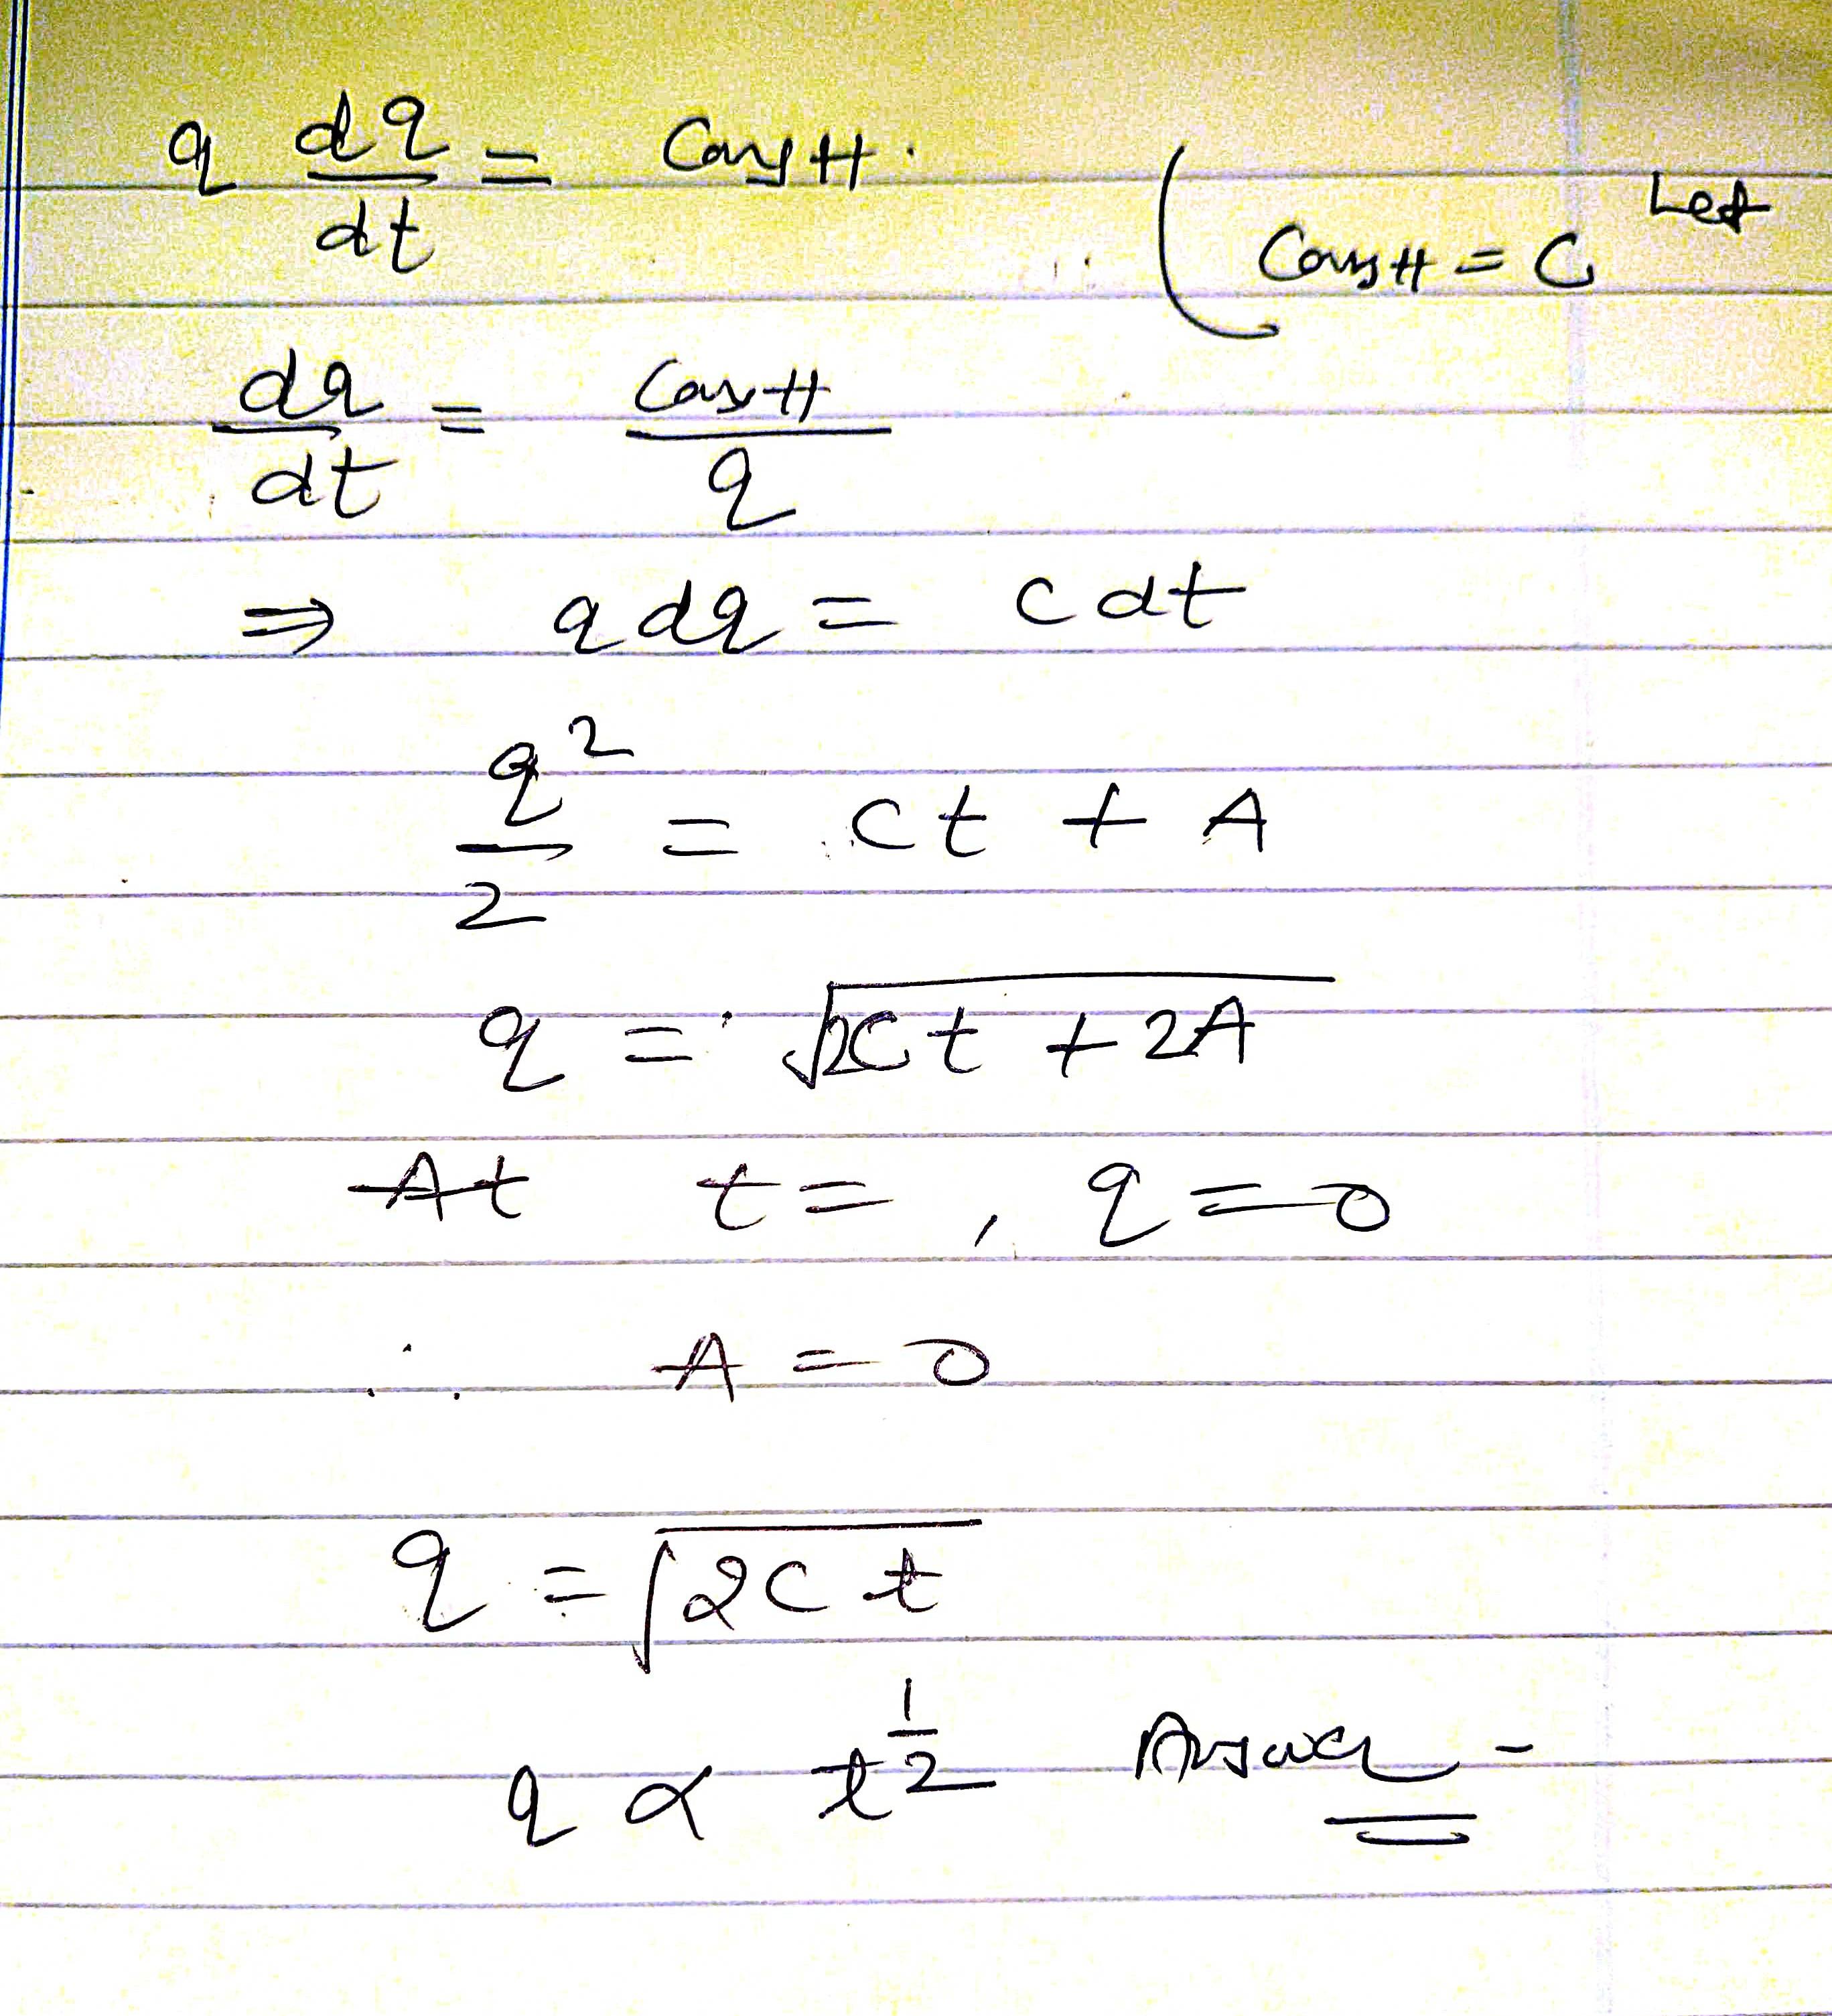 q dq/dt = Const.
(Const = C Let
dq/dt = Const/q
⇒ q dq = c dt
q²/2 = ct + A
q = √2Ct + 2A
At t = , q = 0
∴ A = 0
q = √2Ct
q ∝ t^1/2 Answer -